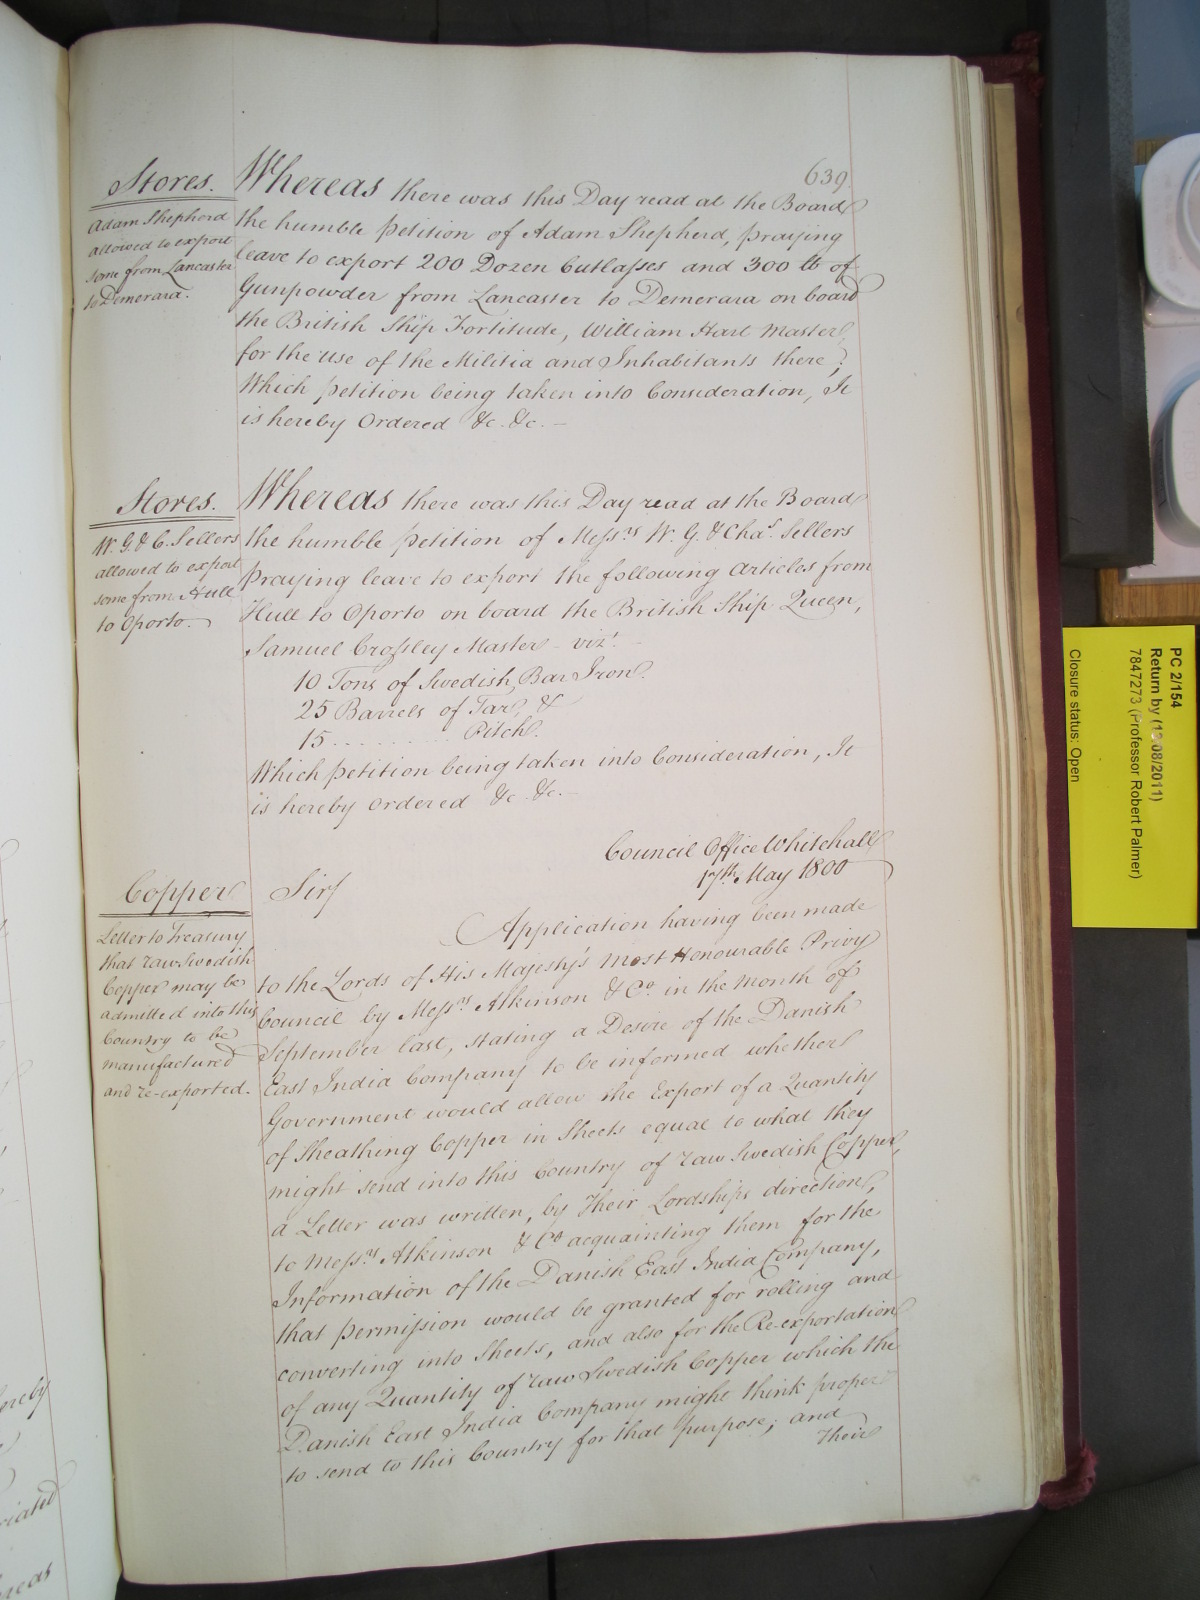 639
Stores.
Adam Shepherd
allowed to export
some from Lancaster
to Demerara.
Whereas there was this Day read at the Board
the humble Petition of Adam Shepherd, praying
leave to export 200 Dozen Cutlasses and 300 lb of
Gunpowder from Lancaster to Demerara on board
the British Ship Fortitude, William Hart Master,
for the use of the Militia and Inhabitants there;
Which petition being taken into Consideration, It
is hereby Ordered &c. &c. —
Stores.
W. G. & C. Sellers
allowed to export
some from Hull
to Oporto.
Whereas there was this Day read at the Board
the humble petition of Messrs W. G. & Chas. Sellers
praying leave to export the following articles from
Hull to Oporto on board the British Ship Queen,
Samuel Crossley Master - vizt.
10 Tons of Swedish Bar Iron.
25 Barrels of Tar, &
15 . . . . . . . . Pitch.
Which petition being taken into Consideration, It
is hereby ordered &c. &c. —
Council Office Whitehall
17th. May 1800
Copper
Letter to Treasury
that raw Swedish
Copper may be
admitted into this
Country to be
manufactured
and re-exported.
Sir,
Application having been made
to the Lords of His Majesty's most Honourable Privy
Council by Messrs Atkinson & Co. in the month of
September last, stating a Desire of the Danish
East India Company to be informed whether
Government would allow the Export of a Quantity
of Sheathing Copper in Sheets equal to what they
might send into this Country of raw Swedish Copper,
a Letter was written, by Their Lordships direction,
to Messrs Atkinson & Co acquainting them for the
Information of the Danish East India Company,
that permission would be granted for rolling and
converting into Sheets, and also for the Re-exportation
of any Quantity of raw Swedish Copper which the
Danish East India Company might think proper
to send to this Country for that purpose; and
Their
PC 2/154
7847273 (Professor Robert Palmer)
Closure status: Open